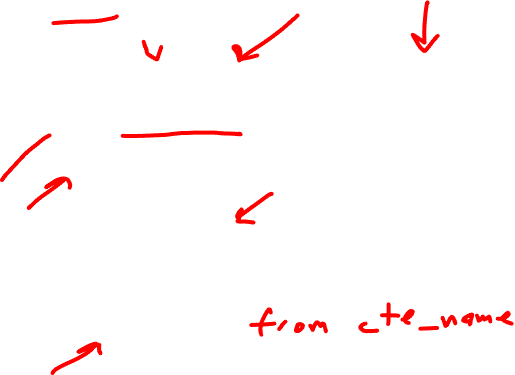 from cte_name